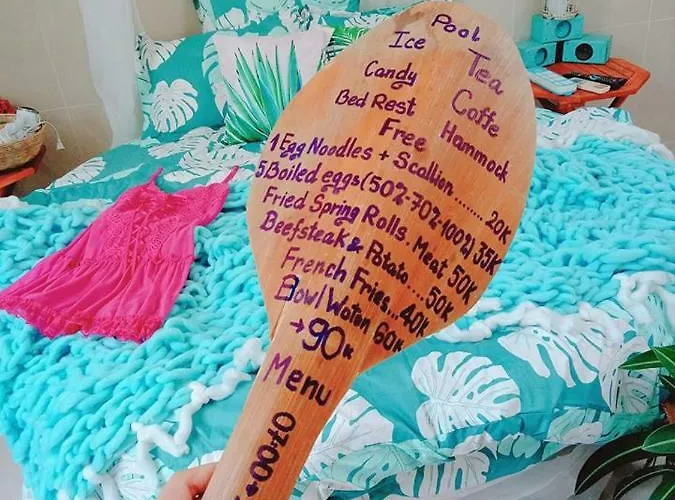 Pool
Ice Tea
Candy Coffe
Bed Rest Hammock
Free
1 Egg Noodles + Scallion ........ 20K
5 Boiled eggs (50%-70%-100%) 35K
Fried Spring Rolls . Meat 50K
Beefsteak & Potato .... 50K
French Fries... 40K
Bowl Woton 60K
→ 90K
Menu